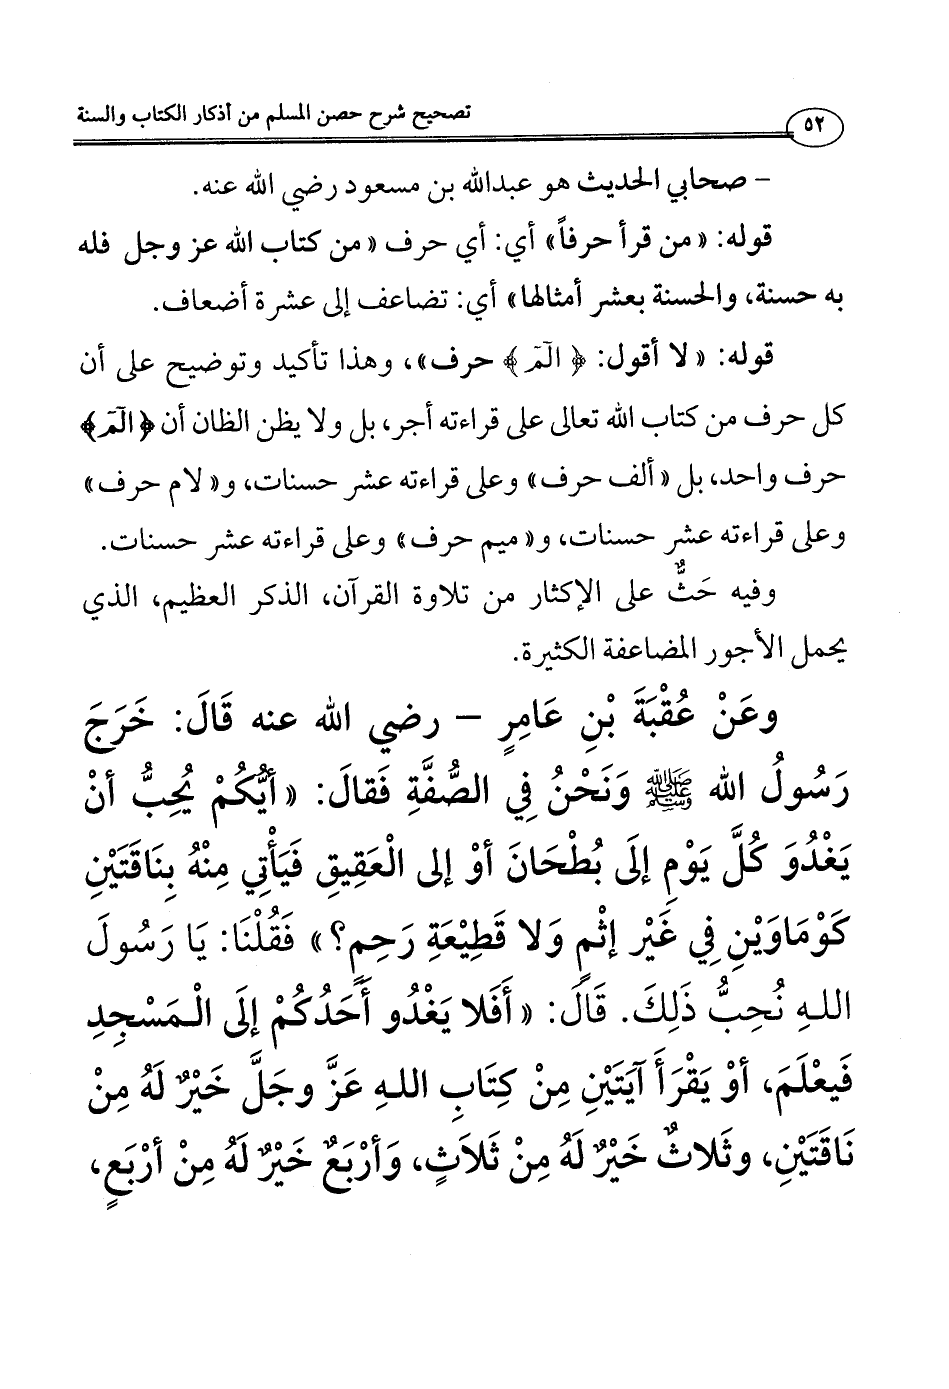 ٥٢
تصحيح شرح حصن المسلم من أذكار الكتاب والسنة
- صحابي الحديث هو عبدالله بن مسعود رضي الله عنه.
قوله: «من قرأ حرفاً» أي: أي حرف «من كتاب الله عز وجل فله
به حسنة، والحسنة بعشر أمثالها» أي: تضاعف إلى عشرة أضعاف.
قوله: «لا أقول: ﴿الٓمٓ﴾ حرف»، وهذا تأكيد وتوضيح على أن
كل حرف من كتاب الله تعالى على قراءته أجر، بل ولا يظن الظان أن ﴿الٓمٓ﴾
حرف واحد، بل «ألف حرف» وعلى قراءته عشر حسنات، و«لام حرف»
وعلى قراءته عشر حسنات، و«ميم حرف» وعلى قراءته عشر حسنات.
وفيه حَثٌّ على الإكثار من تلاوة القرآن، الذكر العظيم، الذي
يحمل الأجور المضاعفة الكثيرة.
وعَنْ عُقْبَةَ بْنِ عَامِرٍ - رضي الله عنه قَالَ: خَرَجَ
رَسُولُ الله ﷺ وَنَحْنُ فِي الصُّفَّةِ فَقالَ: «أيُّكُمْ يُحِبُّ أنْ
يَغْدُوَ كُلَّ يَوْمٍ إلَى بُطْحَانَ أوْ إلى الْعَقِيقِ فَيَأْتِي مِنْهُ بِنَاقَتَيْنِ
كَوْمَاوَيْنِ فِي غَيْرِ إثْمٍ وَلا قَطِيْعَةِ رَحِمٍ؟» فَقُلْنَا: يَا رَسُولَ
اللهِ نُحِبُّ ذَلِكَ. قَالَ: «أَفَلا يَغْدُو أَحَدُكُمْ إلَى الْمَسْجِدِ
فَيعْلَمَ، أوْ يَقْرَأَ آيَتَيْنِ مِنْ كِتَابِ اللهِ عَزَّ وجَلَّ خَيْرٌ لَهُ مِنْ
نَاقَتَيْنِ، وثَلاثٌ خَيْرٌ لَهُ مِنْ ثَلاَثٍ، وَأرْبَعٌ خَيْرٌ لَهُ مِنْ أرْبَعٍ،